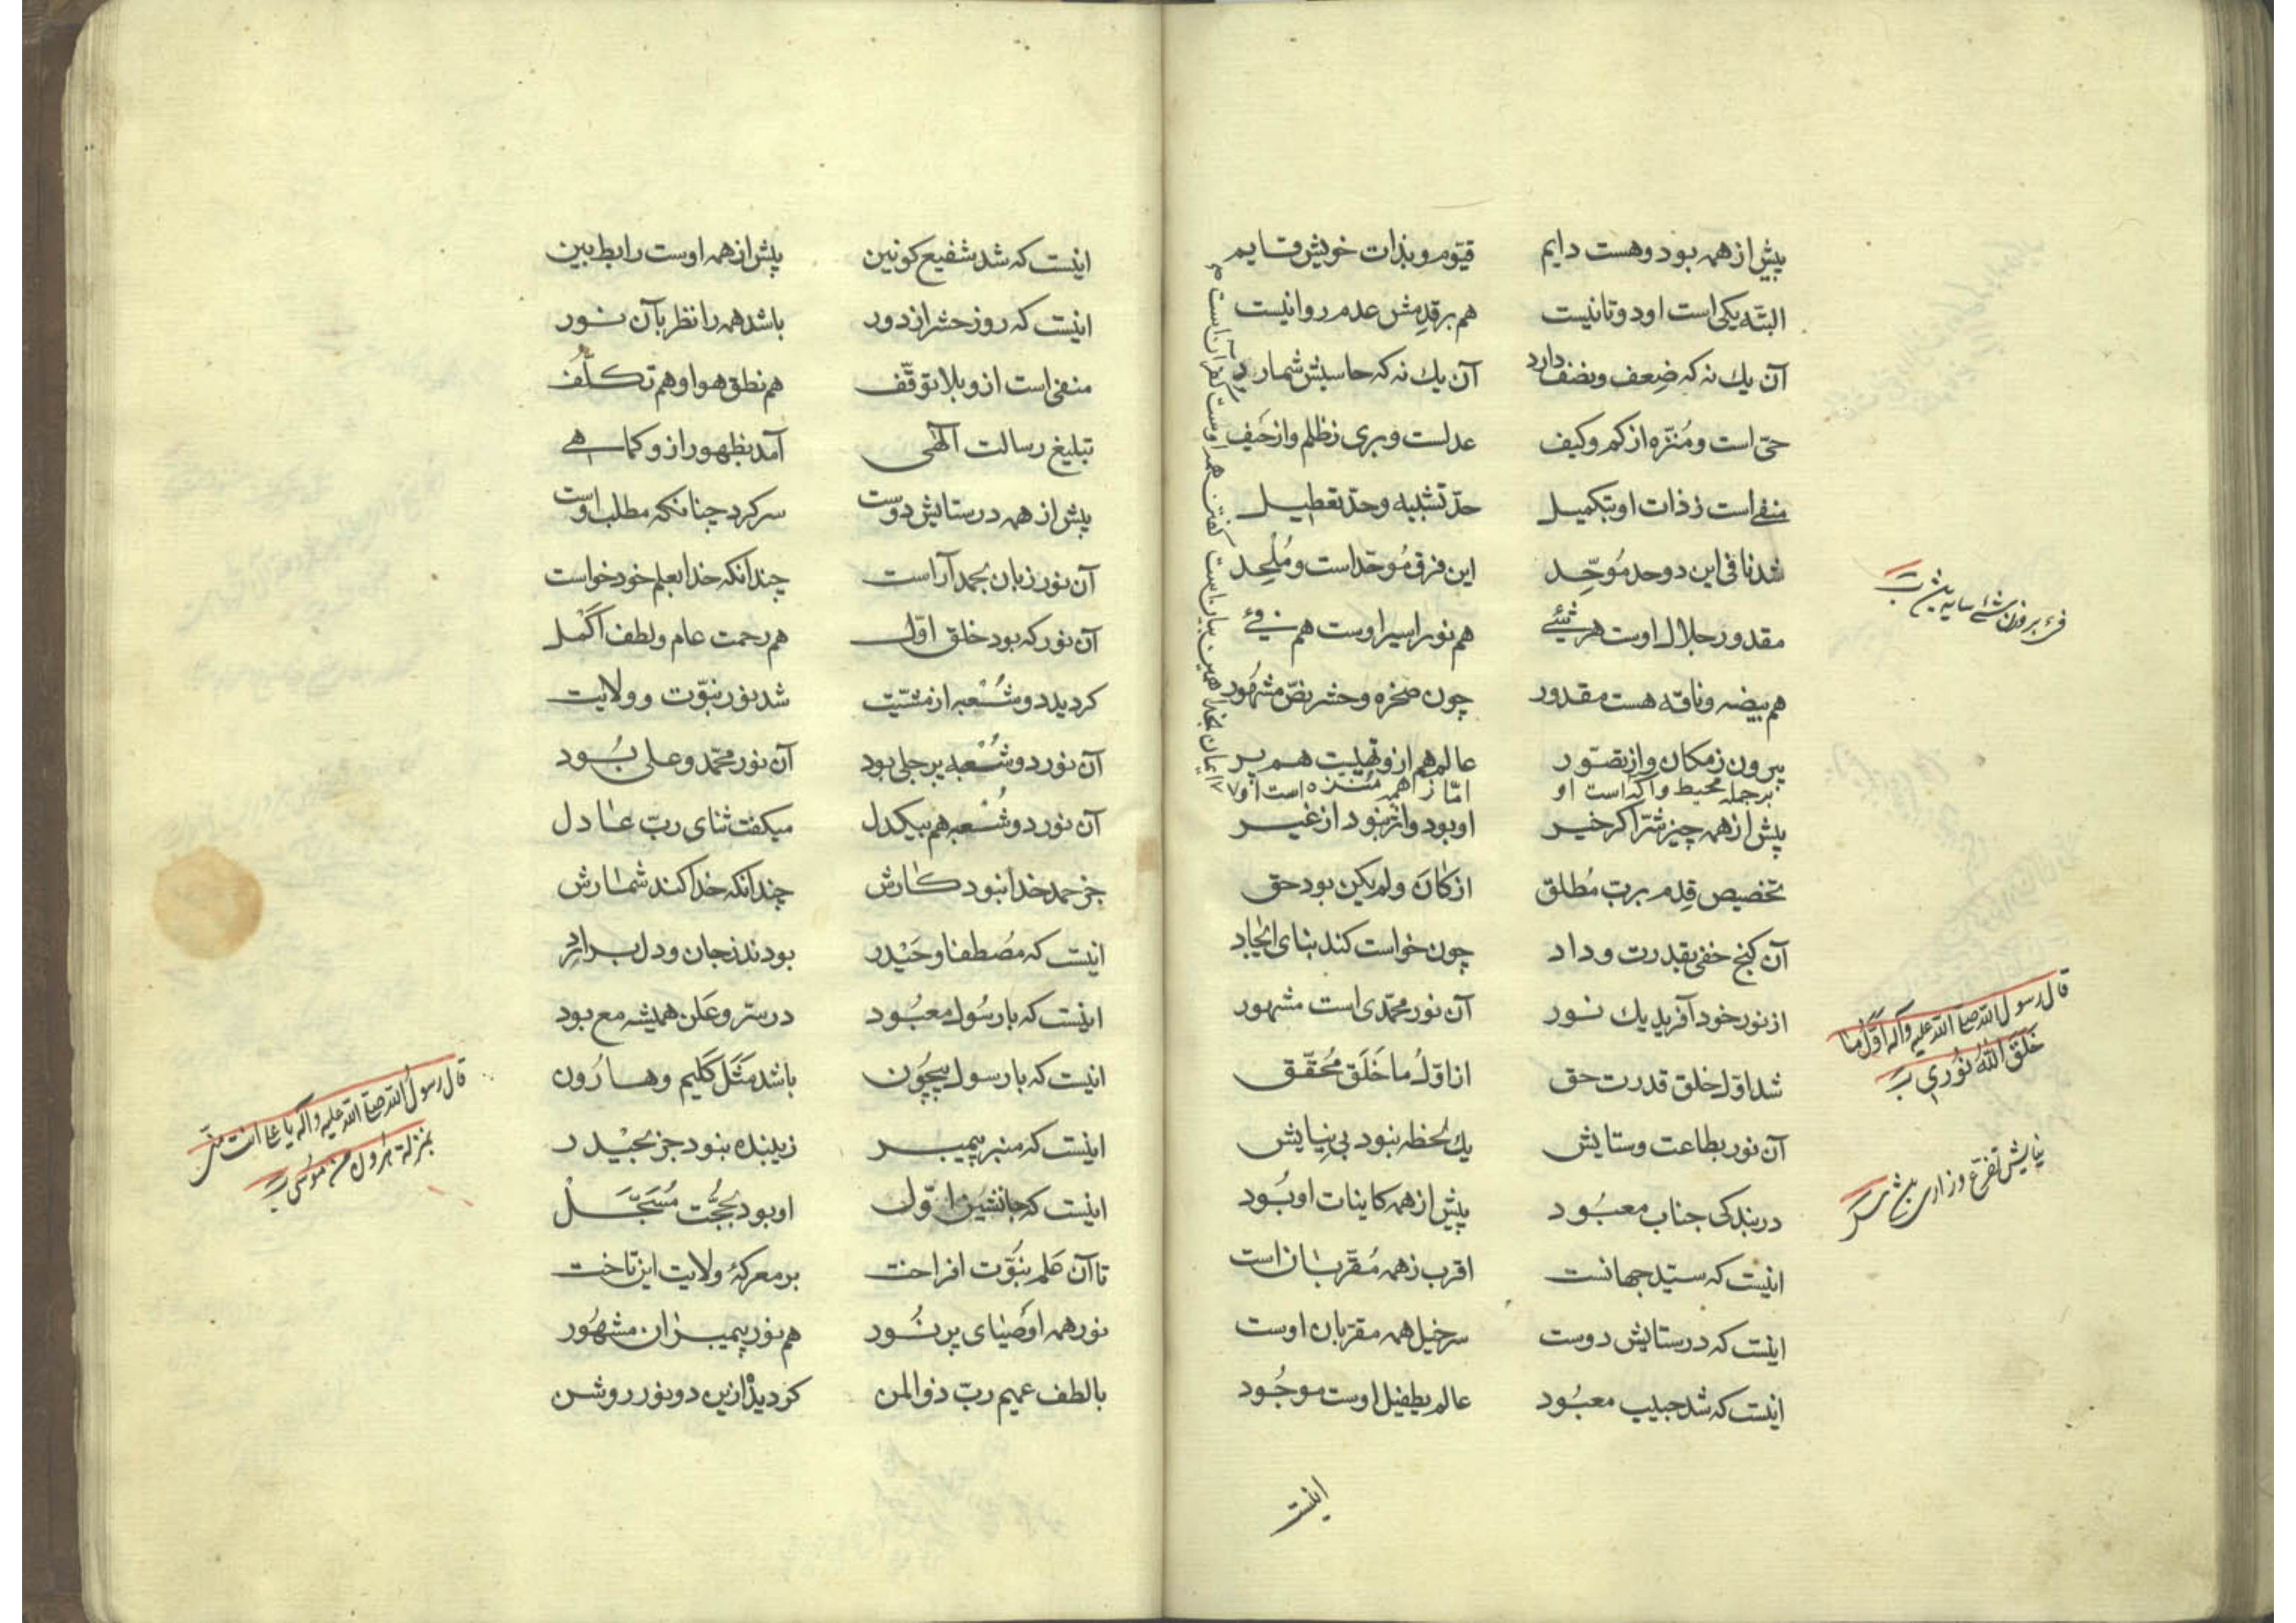 پیش از همه بود و هست دایم قیّوم و بذات خویش قایم
البتّه یکی است او دو تا نیست هم بر قِدمش عدم روا نیست
آن یك نه که ضِعف و نصف دارد آن یك نه که حاسبش شمارد
حیّ است و مُنزّه از کم و کیف عدلست و بری ز ظلم و از حَیف
منفے است ز ذات او بتکمیل حدّ تشبیه و حدّ تعطیل
شد نافی این دو حد مُوحِّد این فرق مُوحّد است و مُلْحِد
مقدور جلال اوست هر شَیْئے هم نور اسیر اوست هم فَیْ
هم بیضه و ناقه هست مقدور چون صخره و حشر نصّ مشهُور
بیرون ز مکان و از تصوّر عالم هم ازو تهیست هم پر
بر جمله محیط و آکه است او امّا ز همه مُنَزّه است او
پیش از همه چیز شر اکر خیر او بود و ازو نبود از غیر
تخصیص قِدم بربّ مُطلق از کانَ ولم یکن بود حق
آن کنج خفی بقدرت و داد چون خواست کند بنای ایجاد
از نور خود آفرید یك نور آن نور محمّدی است مشهور
شد اوّل خلق قدرت حق از اوّلُ ما خَلَق مُحقّق
آن نور بطاعت و ستایش یك لحظه نبود بی نِیایش
در بندکی جناب معبُود پیش از همه کاینات او بُود
اینست که سیّد جهانست اقرب ز همه مُقرّبان است
اینست که در ستایش دوست سر خیل همه مقرّبان اوست
اینست که شد حبیب معبُود عالم بطفیل اوست موجُود
فیْ بر وزن شئ سایه
قال رسول الله صلی الله علیه و آله اوّل ما
خَلَقَ اللهُ نُوری
نیایش تضرّع و زاری
اینست
اینست که شد شفیع کونین پیش از همه اوست رابط بین
اینست که روز حشر از دور باشد همه را نظر بآن نور
منفی است ازو بلا توقّف هم نطق هوا و هم تکلّف
تبلیغ رسالت آلهی آمد بظهور ازو کماهے
پیش از همه در ستایش دوست سر کرد چنانکه مطلب اوست
آن نور زبان بحمد آراست چندانکه خدا بعلم خود خواست
آن نور که بود خلق اوّل هم رحمت عام و لطف اکمل
کردید دو شُعْبه از مشیّت شد نور نبوّت و ولایت
آن نور دو شُعْبه پر جلی بود آن نور محمّد و علی بُود
آن نور دو شُعْبه هم بیکدل میکفت ثنای ربّ عادل
جز حمد خدا نبود کارش چندانکه خدا کند شمارش
اینست که مصُطفا و حَیْدر بودند ز جان و دل برادر
اینست که با رسُول معبُود در سرّ و عَلن همیشه مع بود
اینست که با رسول بیچُون باشد مَثَل کلیم و هارُون
اینست که منبر پیمبر زیبنده نبود جز بحیْدر
اینست که جانشین اوّل او بود بحُجّت مُسَجَّلْ
تا آن عَلم نبُوّت افراخت بر معرکهٔ ولایت این تاخت
نور همه اوصَیای پر نُور هم نور پیمبران مشهُور
با لطف عمیم ربّ ذوالمن کردید ازین دو نور روشن
قال رسول الله صلی الله علیه و آله یا علی انت منّی
بمنزلة هرون من موسی